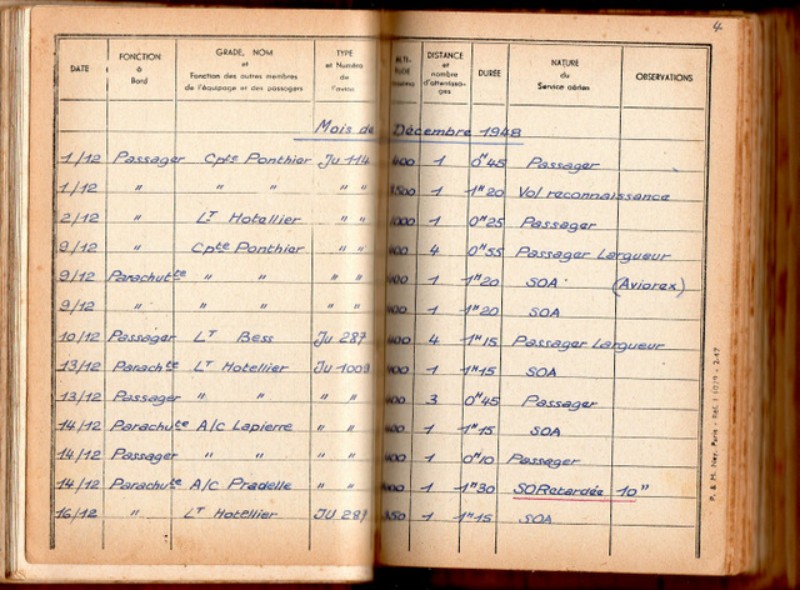 4
DATE FONCTION à Bord GRADE, NOM et Fonction des autres membres de l'équipage et des passagers TYPE et Numéro de l'avion ALTI- TUDE DISTANCE et nombre d'atterrissa- ges DURÉE NATURE du Service aérien OBSERVATIONS
Mois de Décembre 1948
1/12 Passager Cpte Ponthier Ju 114 400 1 0H45 Passager
1/12 " " " " " 1500 1 1H20 Vol reconnaissance
2/12 " LT Hotellier " " 1000 1 0H25 Passager
9/12 " Cpte Ponthier " " 400 4 0H55 Passager Largueur
9/12 Parachutte " " " " 400 1 1H20 SOA (Aviorex)
9/12 " " " " " 400 1 1H20 SOA
10/12 Passager LT Bess Ju 287 400 4 1H15 Passager Largueur
13/12 Parachte LT Hotellier Ju 1009 400 1 1H15 SOA
13/12 Passager " " " " 400 3 0H45 Passager
14/12 Parachute A/C Lapierre " " 400 1 1H15 SOA
14/12 Passager " " " " 400 1 0H10 Passager
14/12 Parachute A/C Pradelle " " 1 1H30 SORetardée 10"
16/12 " LT Hotellier JU 287 350 1 1H15 SOA
P. & M. Ney, Paris - Réf. 11019 - 2-47